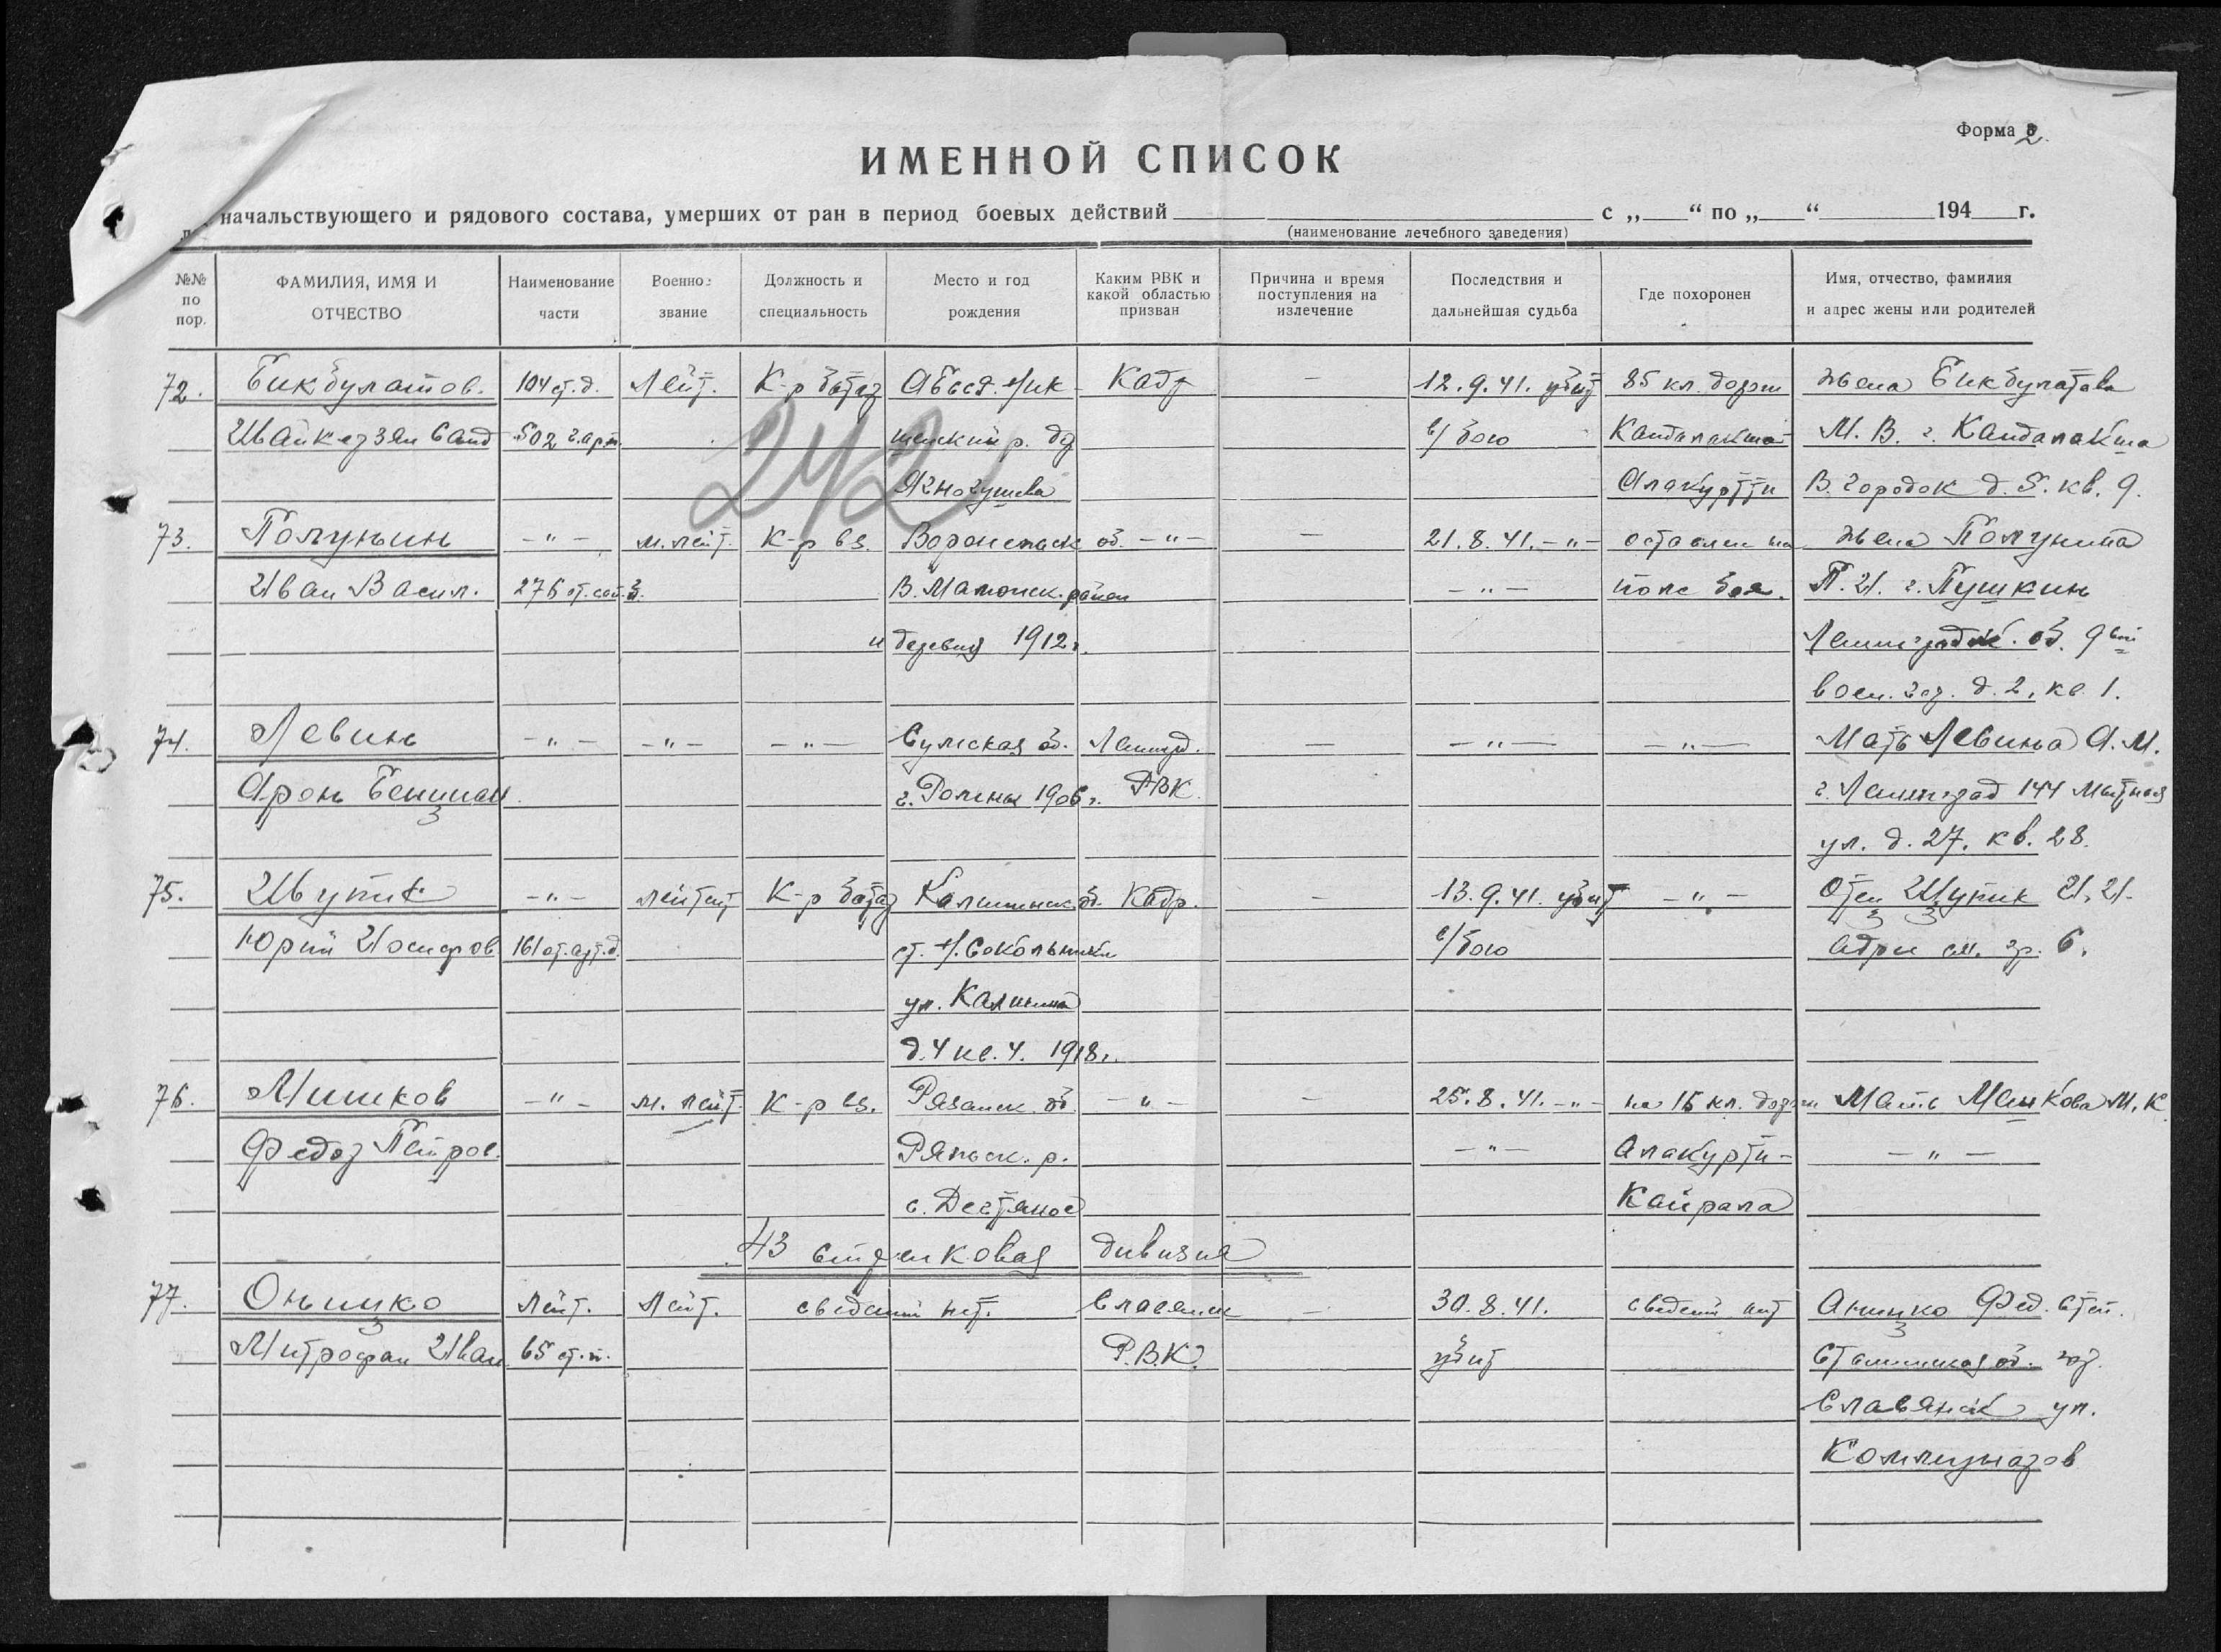 Форма 2.
ИМЕННОЙ СПИСОК
начальствующего и рядового состава, умерших от ран в период боевых действий с „ “ по „ “ 194 г.
(наименование лечебного заведения)
№№ по пор.
ФАМИЛИЯ, ИМЯ И ОТЧЕСТВО
Наименование части
Военное звание
Должность и специальность
Место и год рождения
Каким РВК и какой областью призван
Причина и время поступления на излечение
Последствия и дальнейшая судьба
Где похоронен
Имя, отчество, фамилия и адрес жены или родителей
242
72. Бикбулатов. 104 ст.д. Лейт. К-р батар Кадр — 12.9.41. убит 85 кл. дорги жена Бикбулатова
502 г.арт. в/бою Кандалакша М. В. г. Кандалакша
Алакуртти В. городок д. 5. кв. 9.
73. Полунин — " — м. лейт. К-р вз. Воронежск об. — " — — 21.8.41. — " — оставлен на жена Полунина
Иван Васил. 276 от. сап. б. — " — поле боя. П. И. г. Пушкин
деревня 1912 г. Ленинградск. об. 9 ой
воен. гор. д. 2, кв. 1.
74. Левин — " — — " — — " — Сумская об. Ленингр. — — " — — " — Мать Левина А. М.
Арон Бенциан г. Ромны 1906 г. РВК г. Ленинград 144 Мытная
ул. д. 27. кв. 28.
75. Ивутик — " — лейтент К-р батар Калининск. об. Кадр. — 13.9.41. убит — " — Отец И. И.
Юрий Иосифов 161 от. арт. д. ст. Н. Сокольники в/бою Адрес см. гр. 6.
ул. Калинина
д. 4 кв. 4. 1918 г.
76. Мишков — " — м. лейт. К-р вз. Рязанск. об. — " — — 25.8.41. — " — на 15 кл. дороги Мать М. К.
Федор Петров. Ряжск. р. — " — Алакуртти - — " —
с. Дегтяное Кайрала
43 стрелковая дивизия
77. Онищко Лейт. Лейт. сведений нет. Славянск — 30.8.41. сведений нет Анищко Фед. Степ.
Митрофан Иван 65 ст. п. Р.В.К. убит Сталинская об. гор.
Славянск ул.
Коммунаров